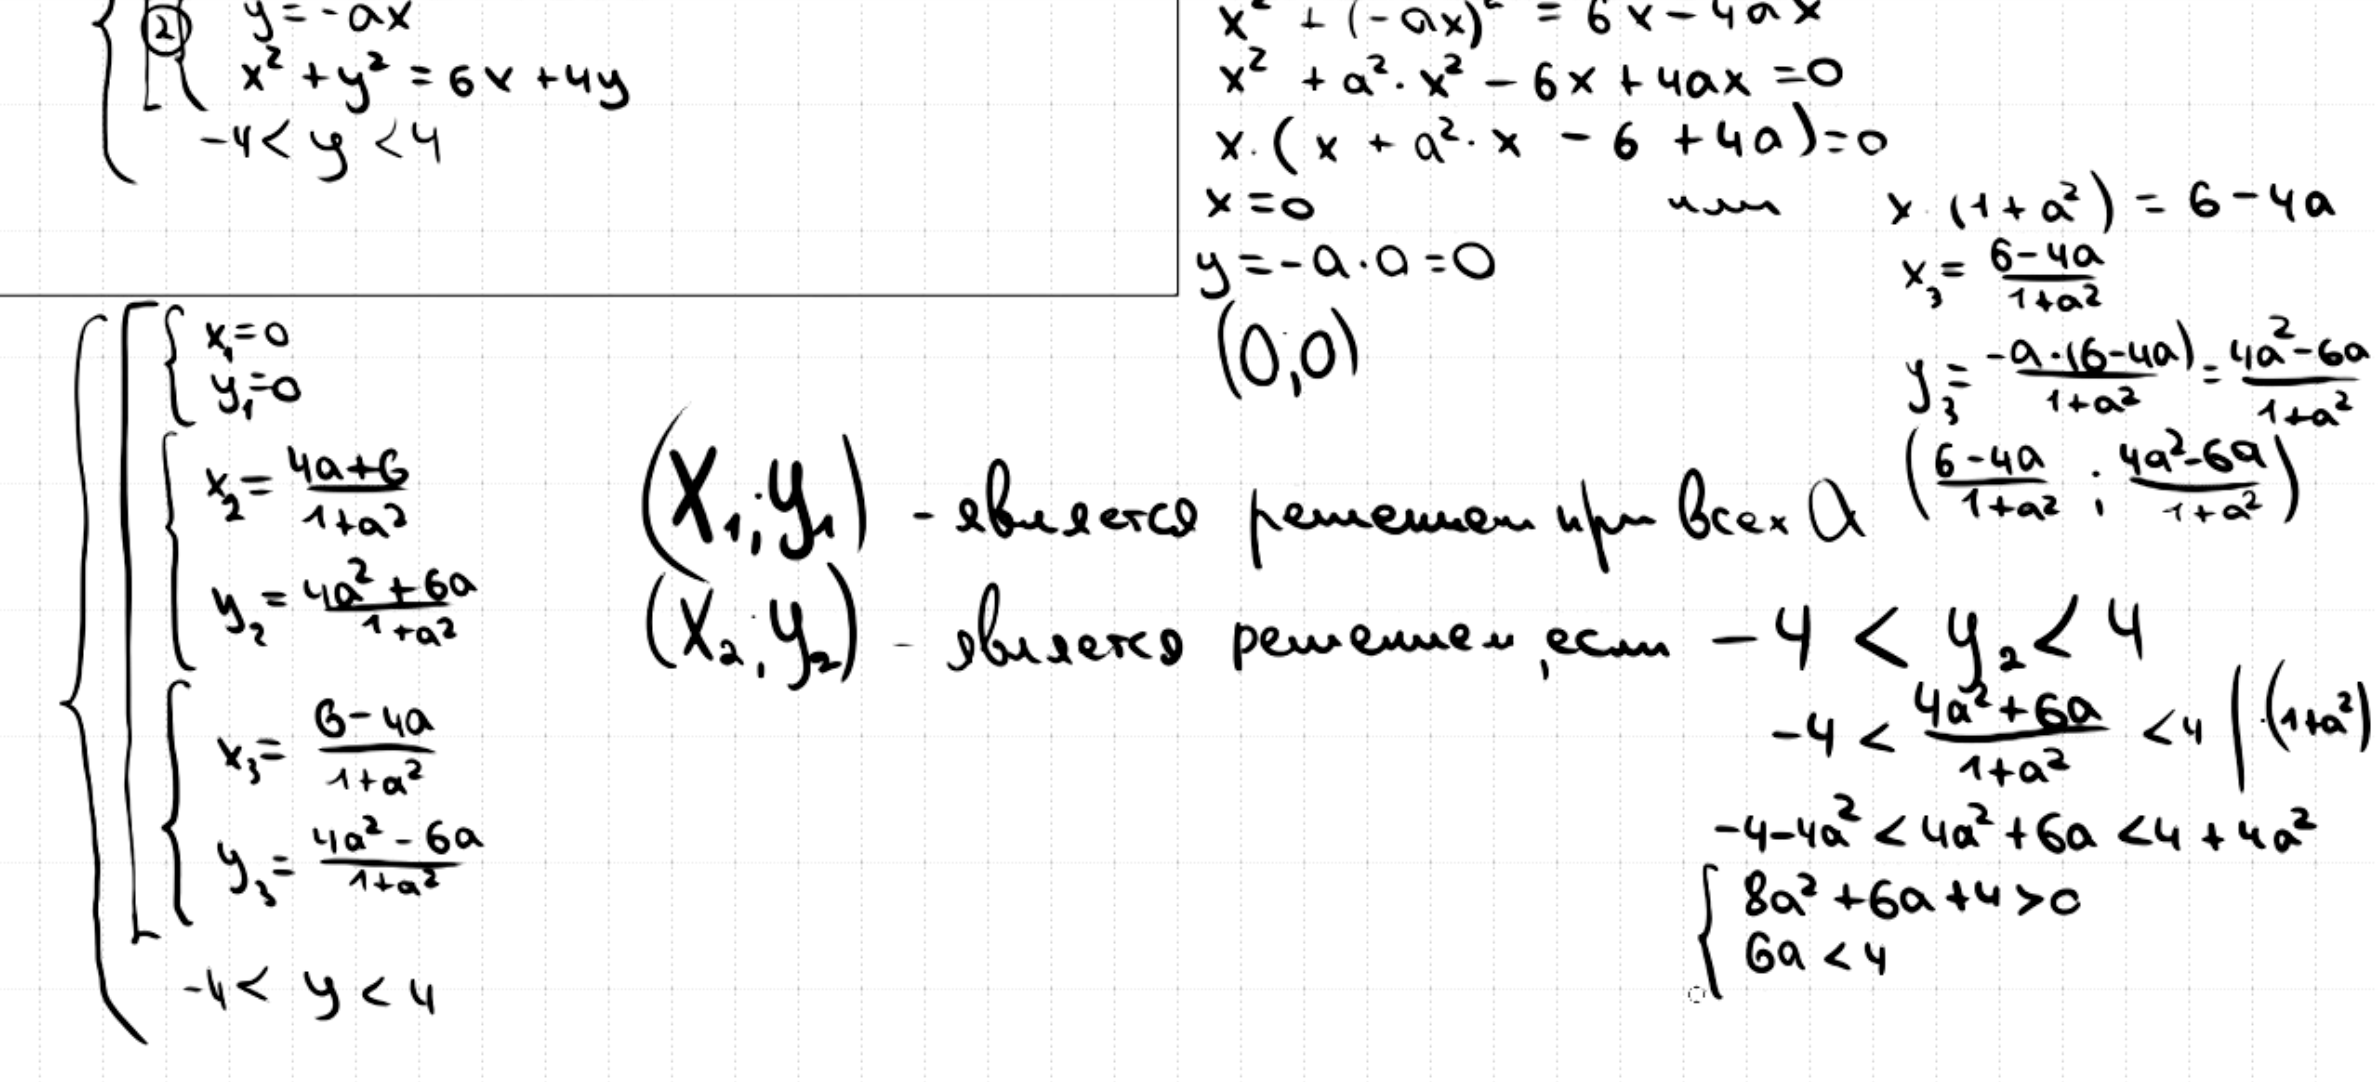 ② y = -ax
x² + y² = 6x + 4y
-4 < y < 4
x² + (-ax)² = 6x - 4ax
x² + a²·x² - 6x + 4ax = 0
x·(x + a²·x - 6 + 4a) = 0
x = 0 или x·(1 + a²) = 6 - 4a
y = -a·0 = 0
(0,0)
x₃ = (6-4a)/(1+a²)
y₃ = (-a·(6-4a))/(1+a²) = (4a²-6a)/(1+a²)
((6-4a)/(1+a²) ; (4a²-6a)/(1+a²))
x₁ = 0
y₁ = 0
x₂ = (4a+6)/(1+a²)
y₂ = (4a²+6a)/(1+a²)
x₃ = (6-4a)/(1+a²)
y₃ = (4a²-6a)/(1+a²)
-4 < y < 4
(x₁; y₁) - является решением при всех a
(x₂; y₂) - является решением, если -4 < y₂ < 4
-4 < (4a²+6a)/(1+a²) < 4 | ·(1+a²)
-4-4a² < 4a²+6a < 4+4a²
8a²+6a+4>0
6a < 4